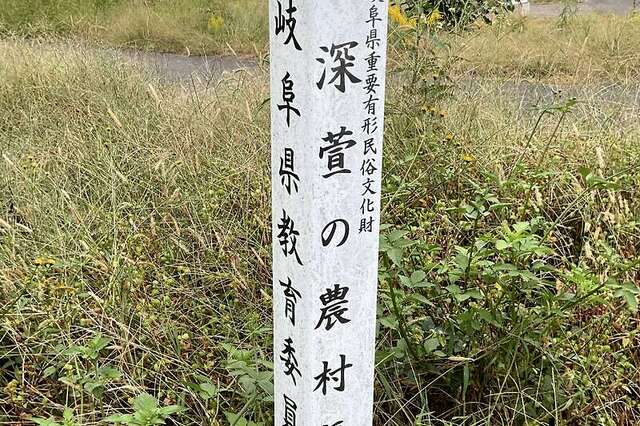 阜県重要有形民俗文化財
深萱の農村
岐阜県教育委員